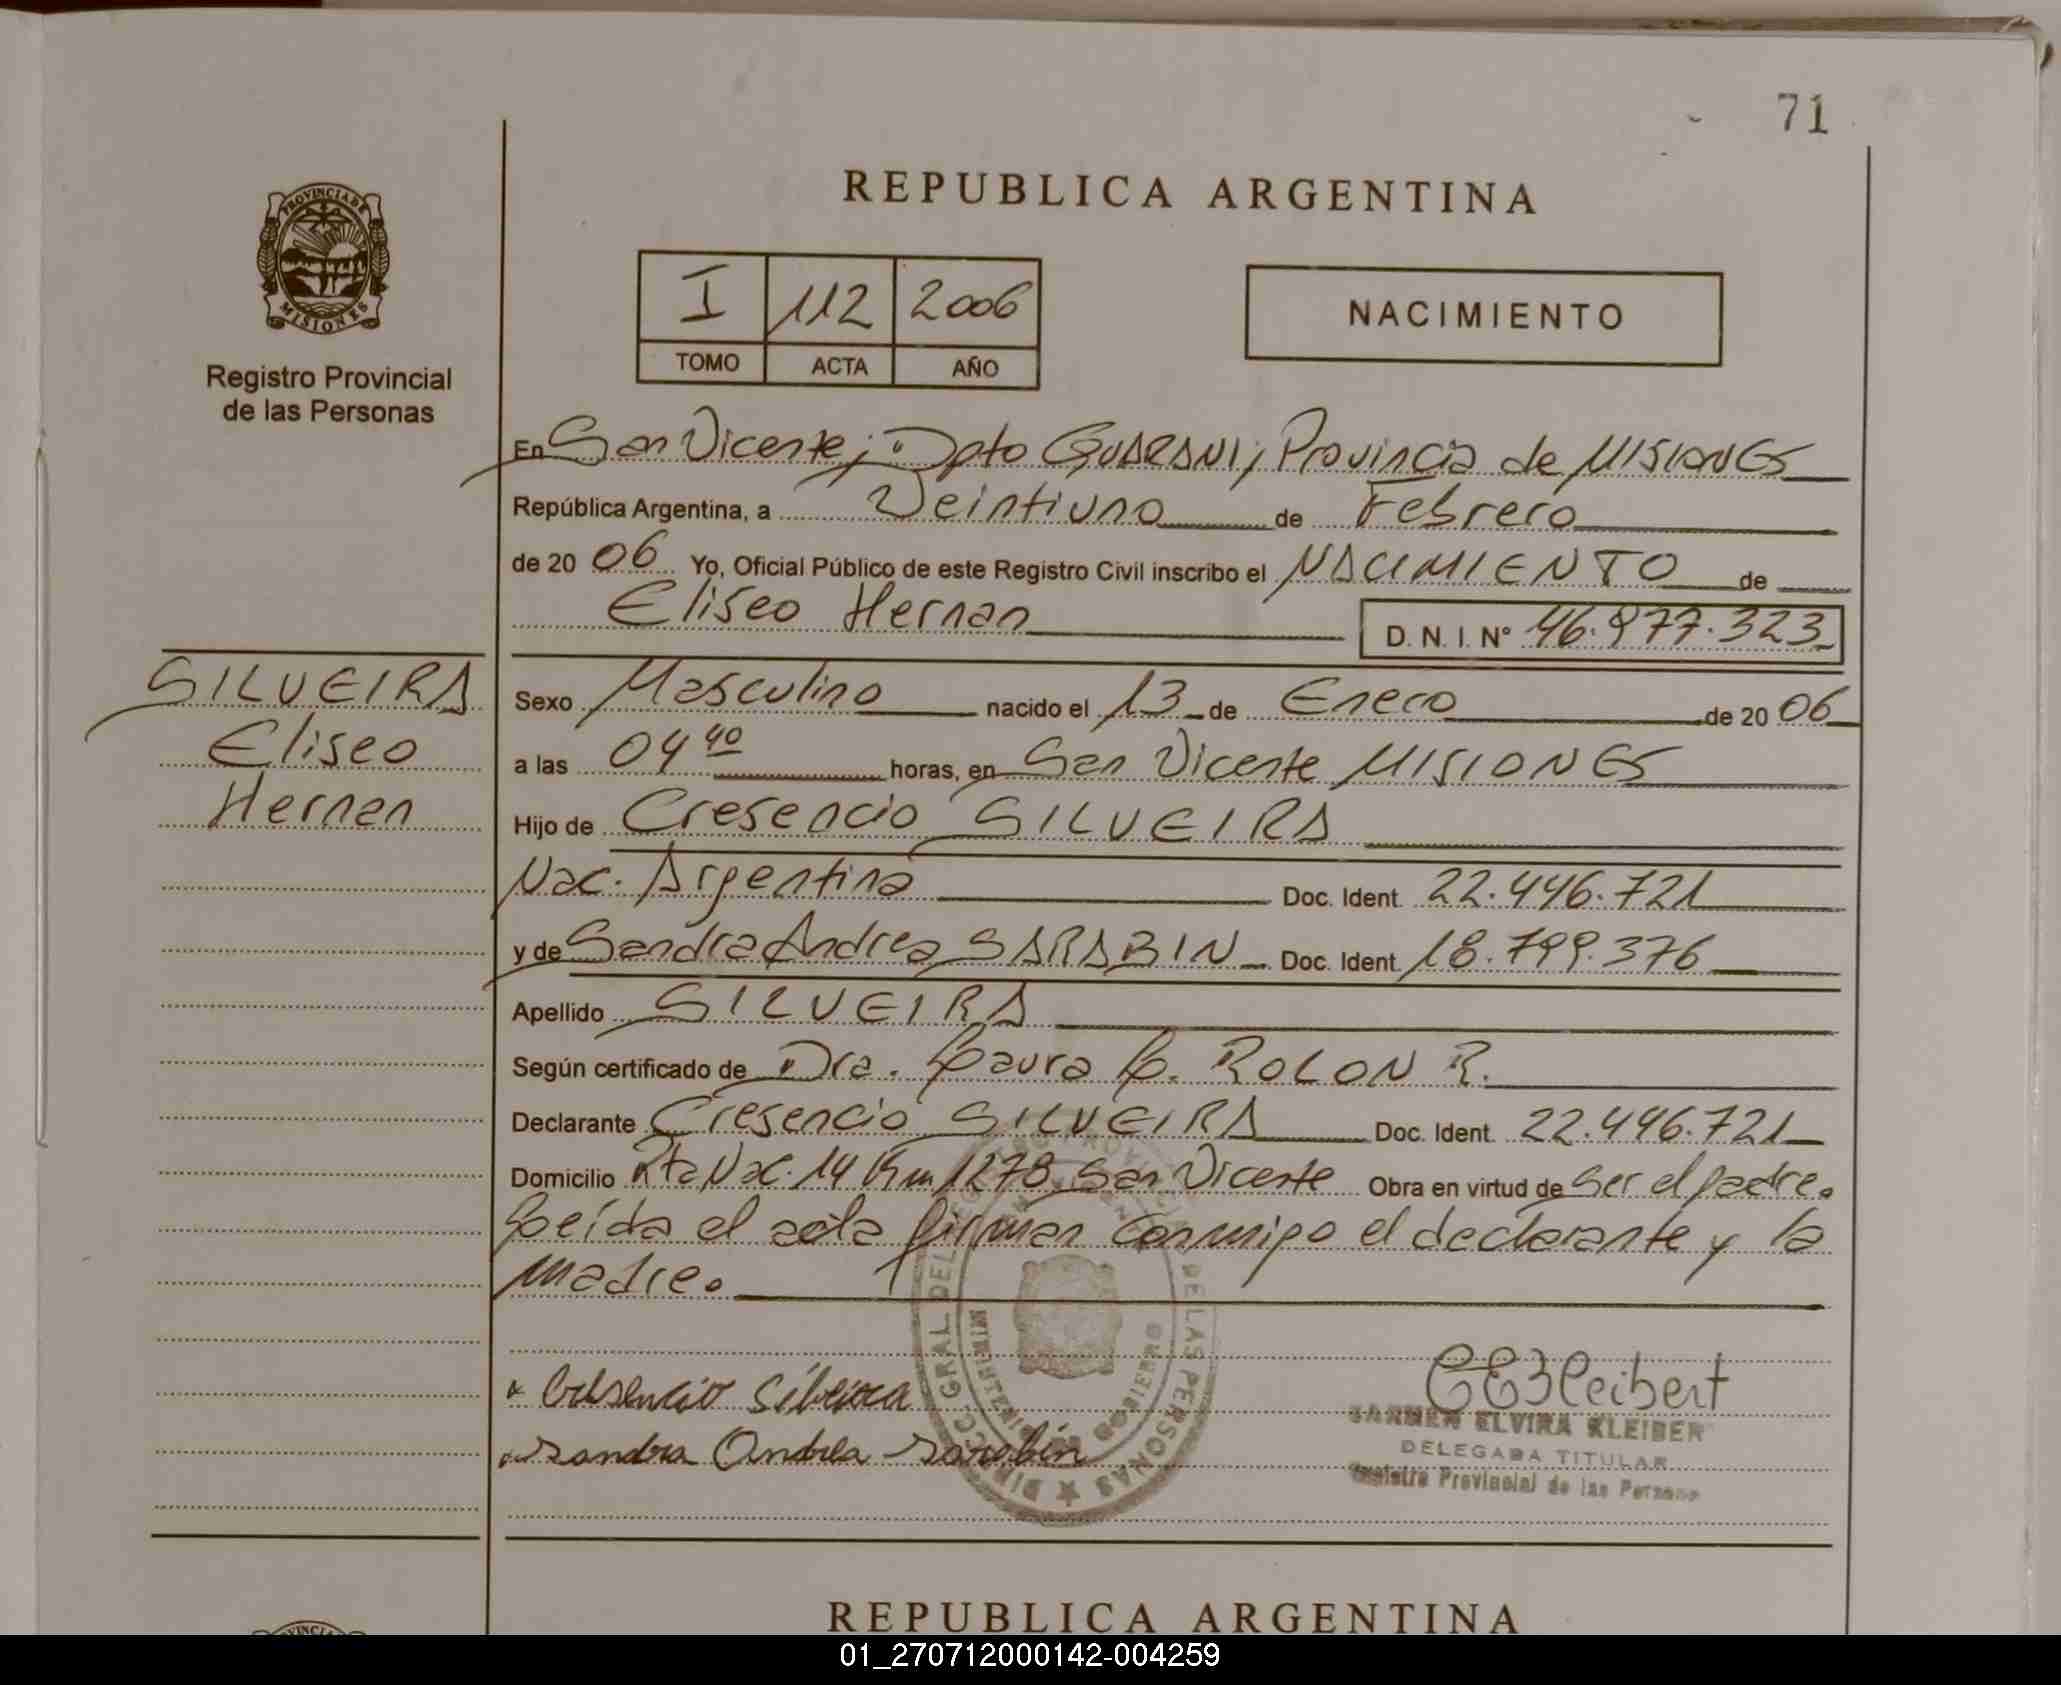 71
REPUBLICA ARGENTINA
PROVINCIA DE
MISIONES
Registro Provincial
de las Personas
I 112 2006
TOMO ACTA AÑO
NACIMIENTO
En San Vicente, Dpto GUARANI, Provincia de MISIONES
República Argentina, a Veintiuno de Febrero
de 20 06 Yo, Oficial Público de este Registro Civil inscribo el NACIMIENTO de
Eliseo Hernan D. N. I. N° 46.977.323
SILVEIRA
Eliseo
Hernan
Sexo Masculino nacido el 13 de Enero de 20 06
a las 04 40 horas, en San Vicente MISIONES
Hijo de Cresencio SILVEIRA
Nac. Argentina Doc. Ident. 22.446.721
y de Sandra Andrea SARABIN Doc. Ident. 18.799.376
Apellido SILVEIRA
Según certificado de Dra. Laura L. ROLON R.
Declarante Cresencio SILVEIRA Doc. Ident. 22.446.721
Domicilio Rta Nac. 14 Km 1278 San Vicente Obra en virtud de ser el padre.
Leída el acta firman conmigo el declarante y la
madre.
Cresencio Silveira
Sandra Andrea Sarabin
DIRECC GRAL DEL DE LAS PERSONAS
CARMEN ELVIRA KLEIBER
DELEGADA TITULAR
Registro Provincial de las Personas
REPUBLICA ARGENTINA
01_270712000142-004259